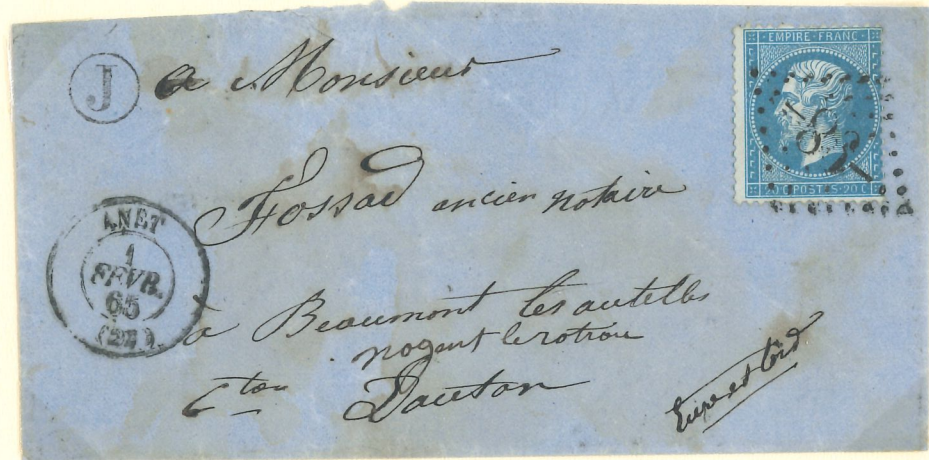 J
a Monsieur
EMPIRE FRANC
20 C POSTES 20 C
Fossad ancien notaire
ANET
1
FEVR.
65
(27)
à Beaumont les autells
nogent le rotrou
Cton Dauton
Eure et Loir